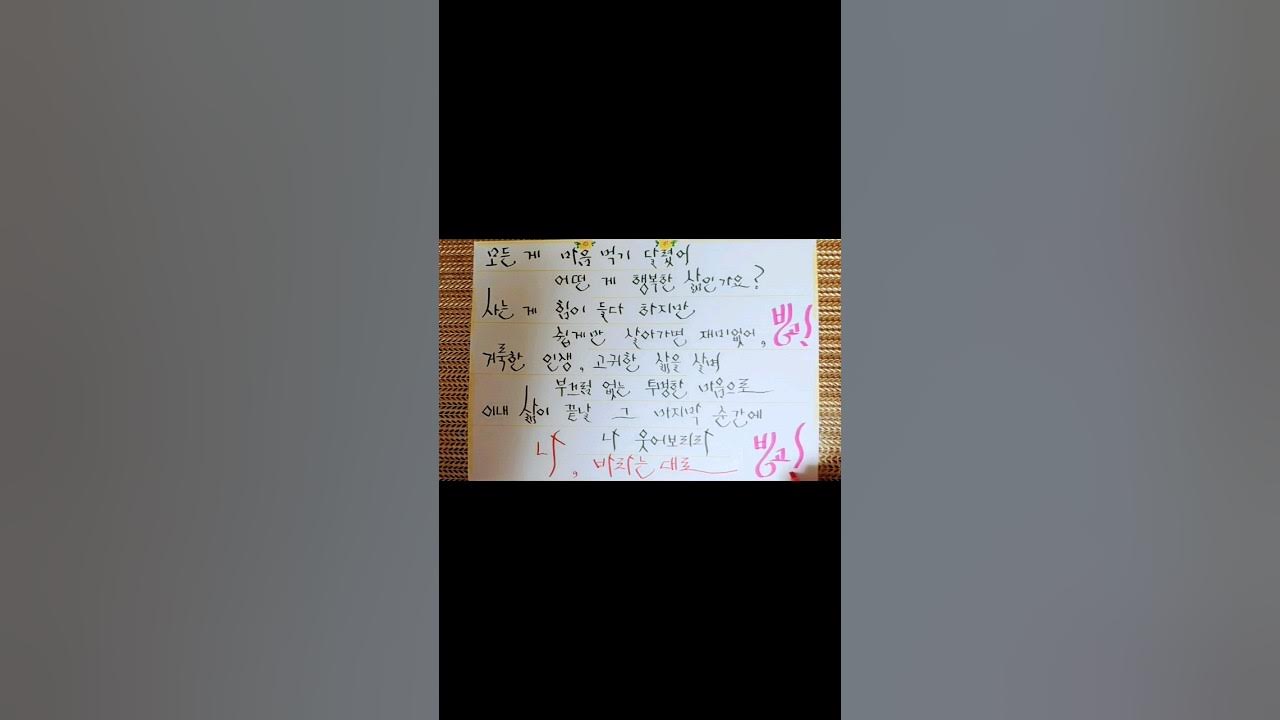 모든 게 마음먹기 달렸어
어떤 게 행복한 삶인가요?
사는 게 힘이 들다 하지만
쉽게만 살아가면 재미없어, 빙고!
거룩한 인생, 고귀한 삶을 살며
부끄럼 없는 투명한 마음으로
이내 삶이 끝날 그 마지막 순간에
나 웃어보리라
나, 바라는 대로 빙고!